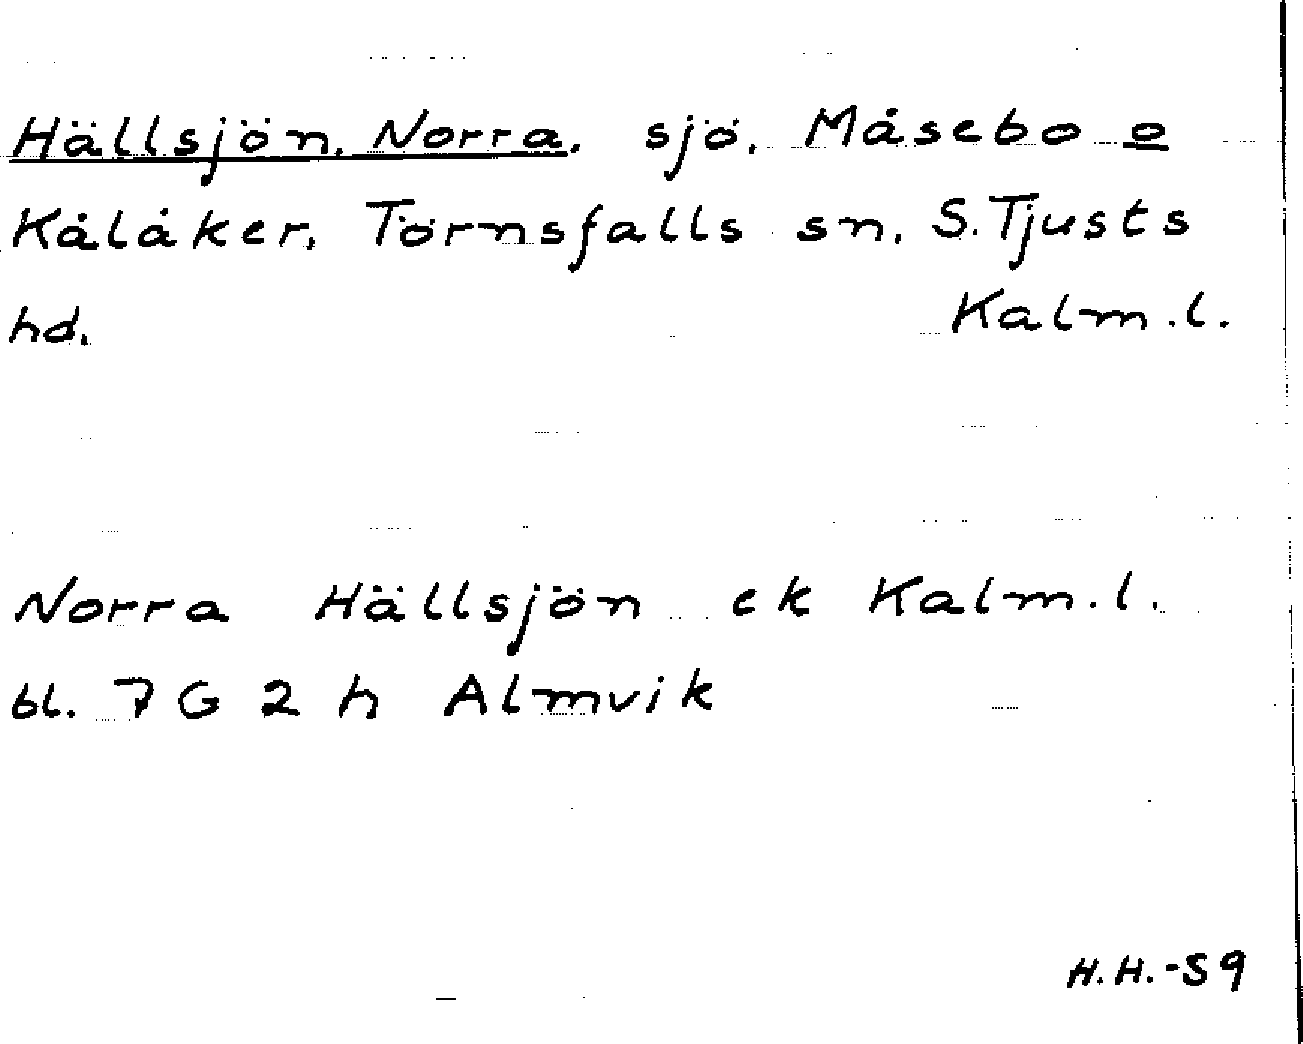 Hällsjön, Norra, sjö, Måsebo o
Kålåker, Törnsfalls sn, S. Tjusts
hd. Kalm. l.
Norra Hällsjön ek Kalm. l.
bl. 7 G 2 h Almvik
H.H.-59